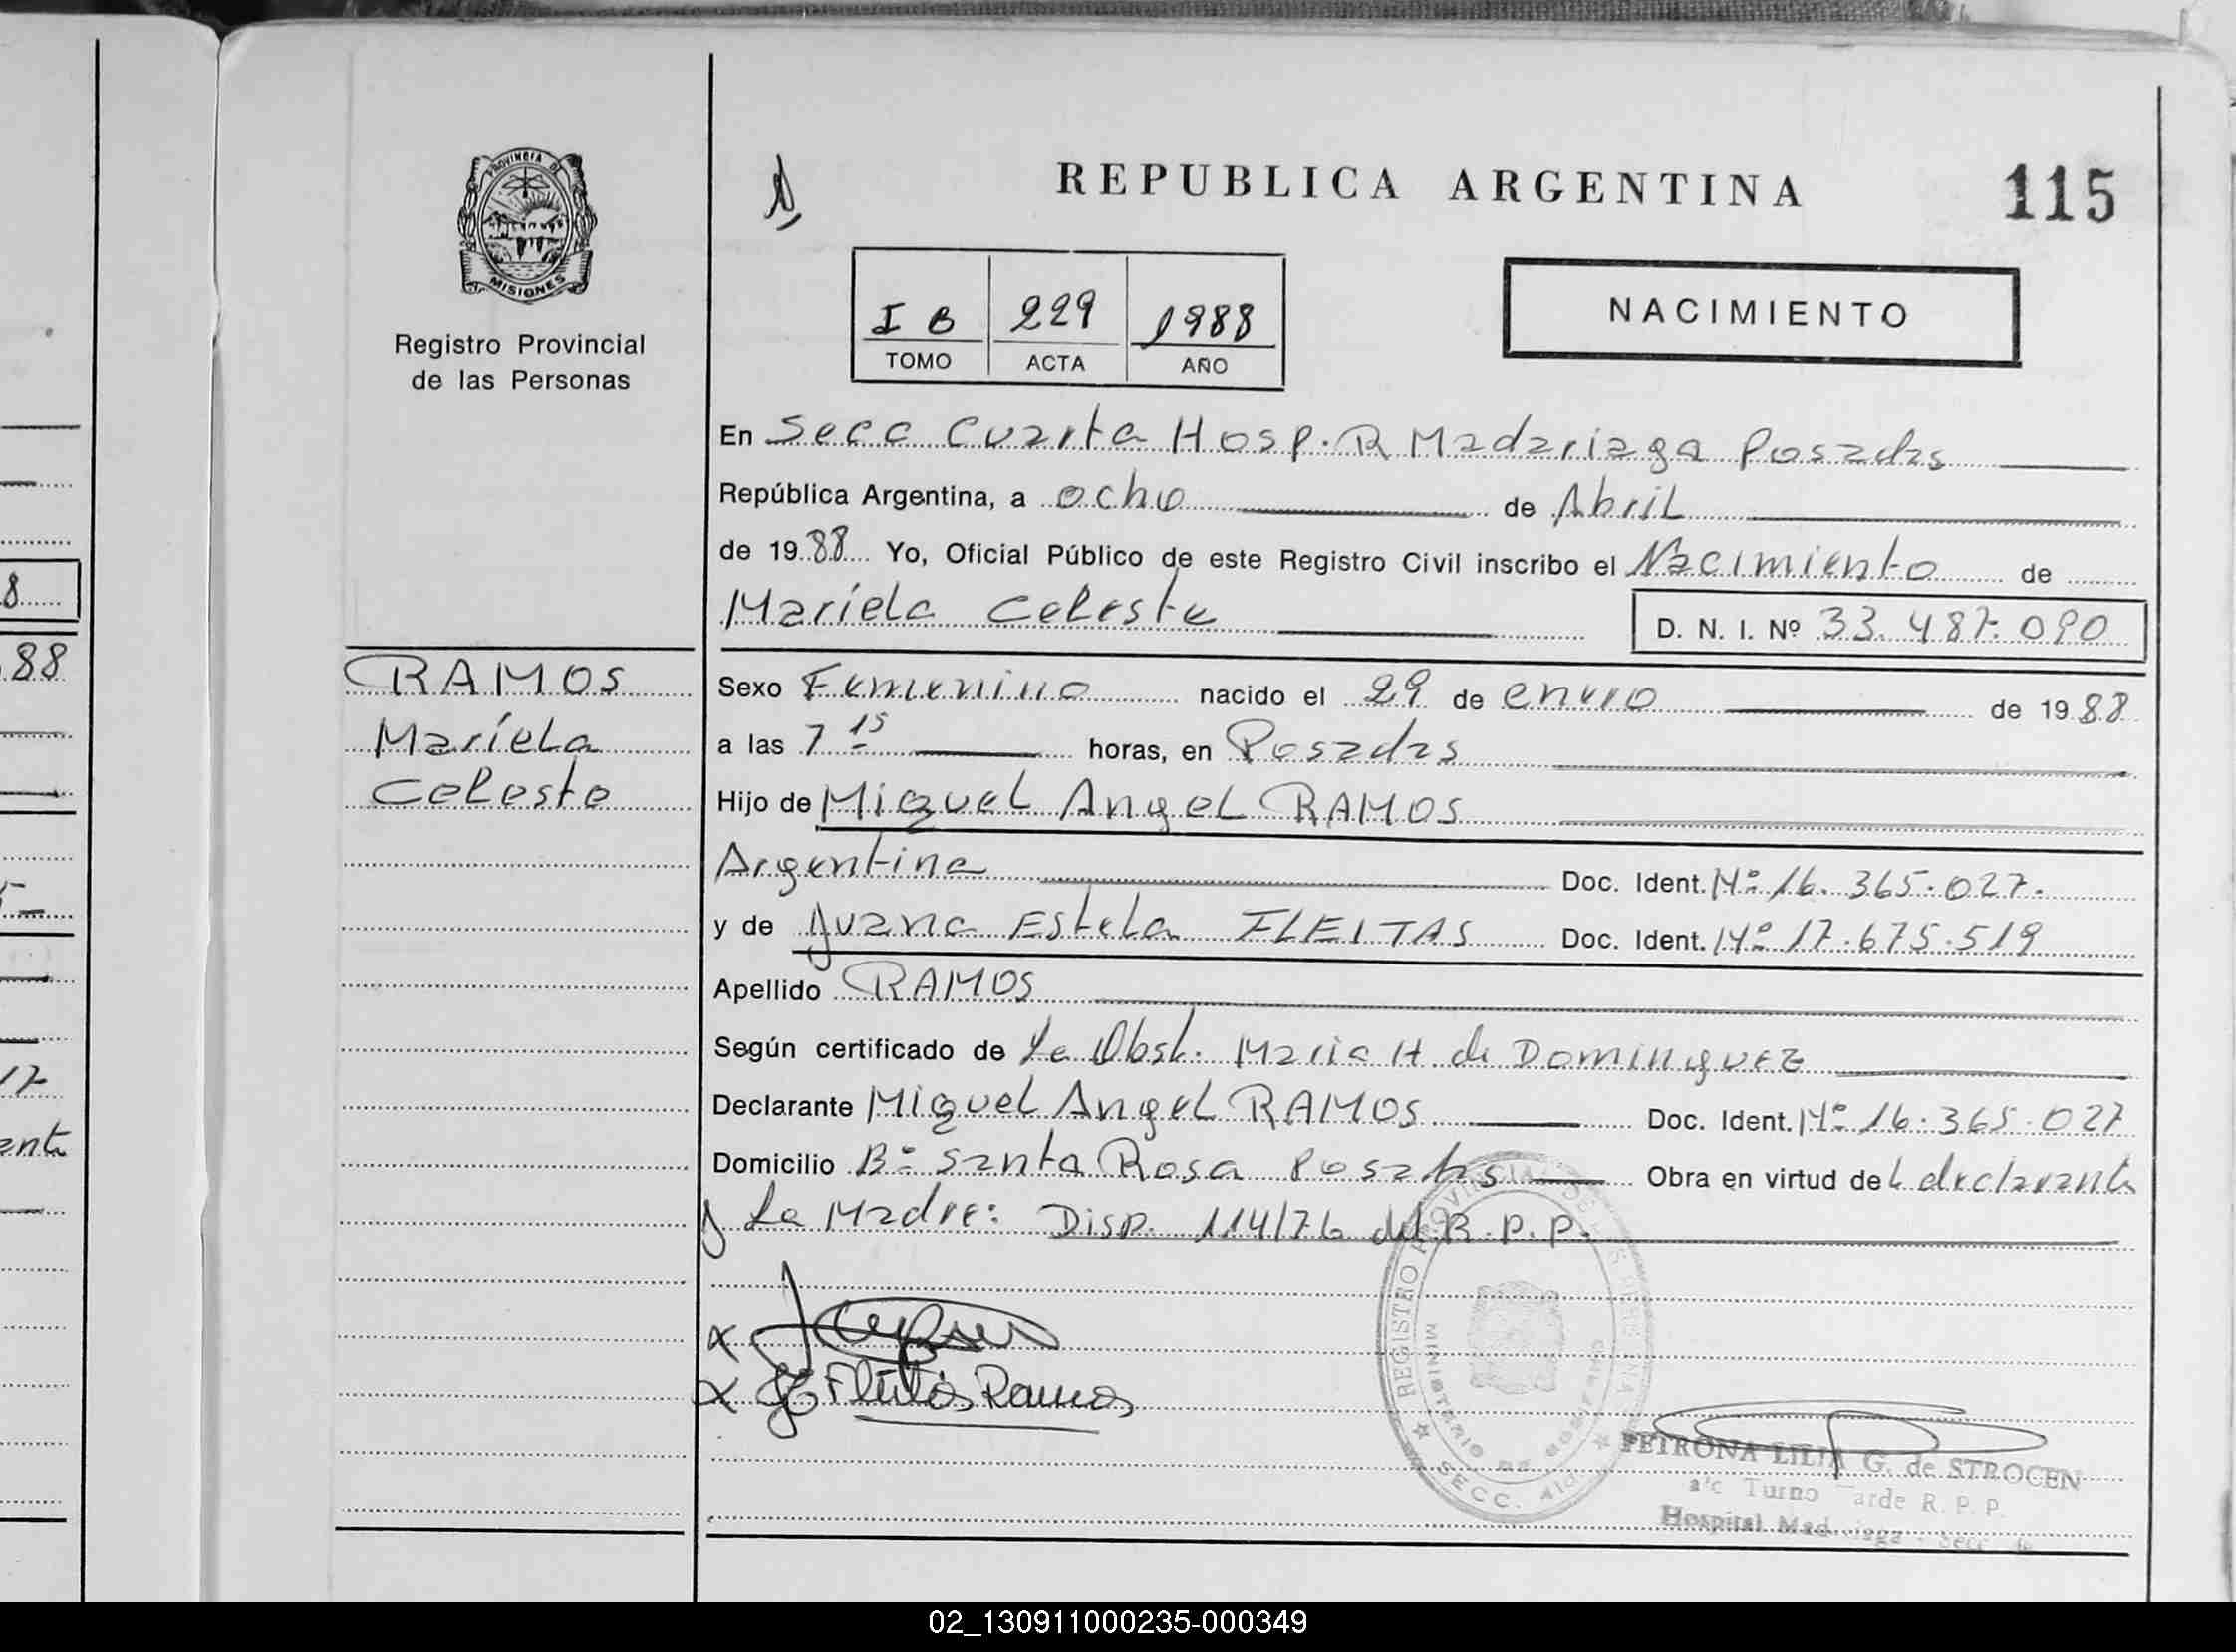 8
88
17
PROVINCIA DE
MISIONES
Registro Provincial
de las Personas
RAMOS
Mariela
Celeste
REPUBLICA ARGENTINA
115
I B 229 1988
TOMO ACTA AÑO
NACIMIENTO
En Secc Cuarta Hosp. R Madariaga Posadas
República Argentina, a ocho de Abril
de 1988 Yo, Oficial Público de este Registro Civil inscribo el Nacimiento de
Mariela Celeste D. N. I. Nº 33.487.090
Sexo Femenino nacido el 29 de enero de 1988
a las 7 15 horas, en Posadas
Hijo de Miguel Angel RAMOS
Argentina Doc. Ident. Nº 16.365.027.
y de Juana Estela FLEITAS Doc. Ident. Nº 17.675.519
Apellido RAMOS
Según certificado de La Obst. Maria H de Dominguez
Declarante Miguel Angel RAMOS Doc. Ident. Nº 16.365.027
Domicilio Bº Santa Rosa Posadas Obra en virtud del declarante
y La Madre: Disp. 114/76 del R.P.P.
x
x JE Fleitas Ramos
REGISTRO PROVINCIAL DE LAS PERSONAS
MINISTERIO DE GOBIERNO
SECC.
PETRONA LILIA G. de STROCEN
a/c Turno Tarde R. P. P.
Hospital Madariaga - Secc. 4a
02_130911000235-000349